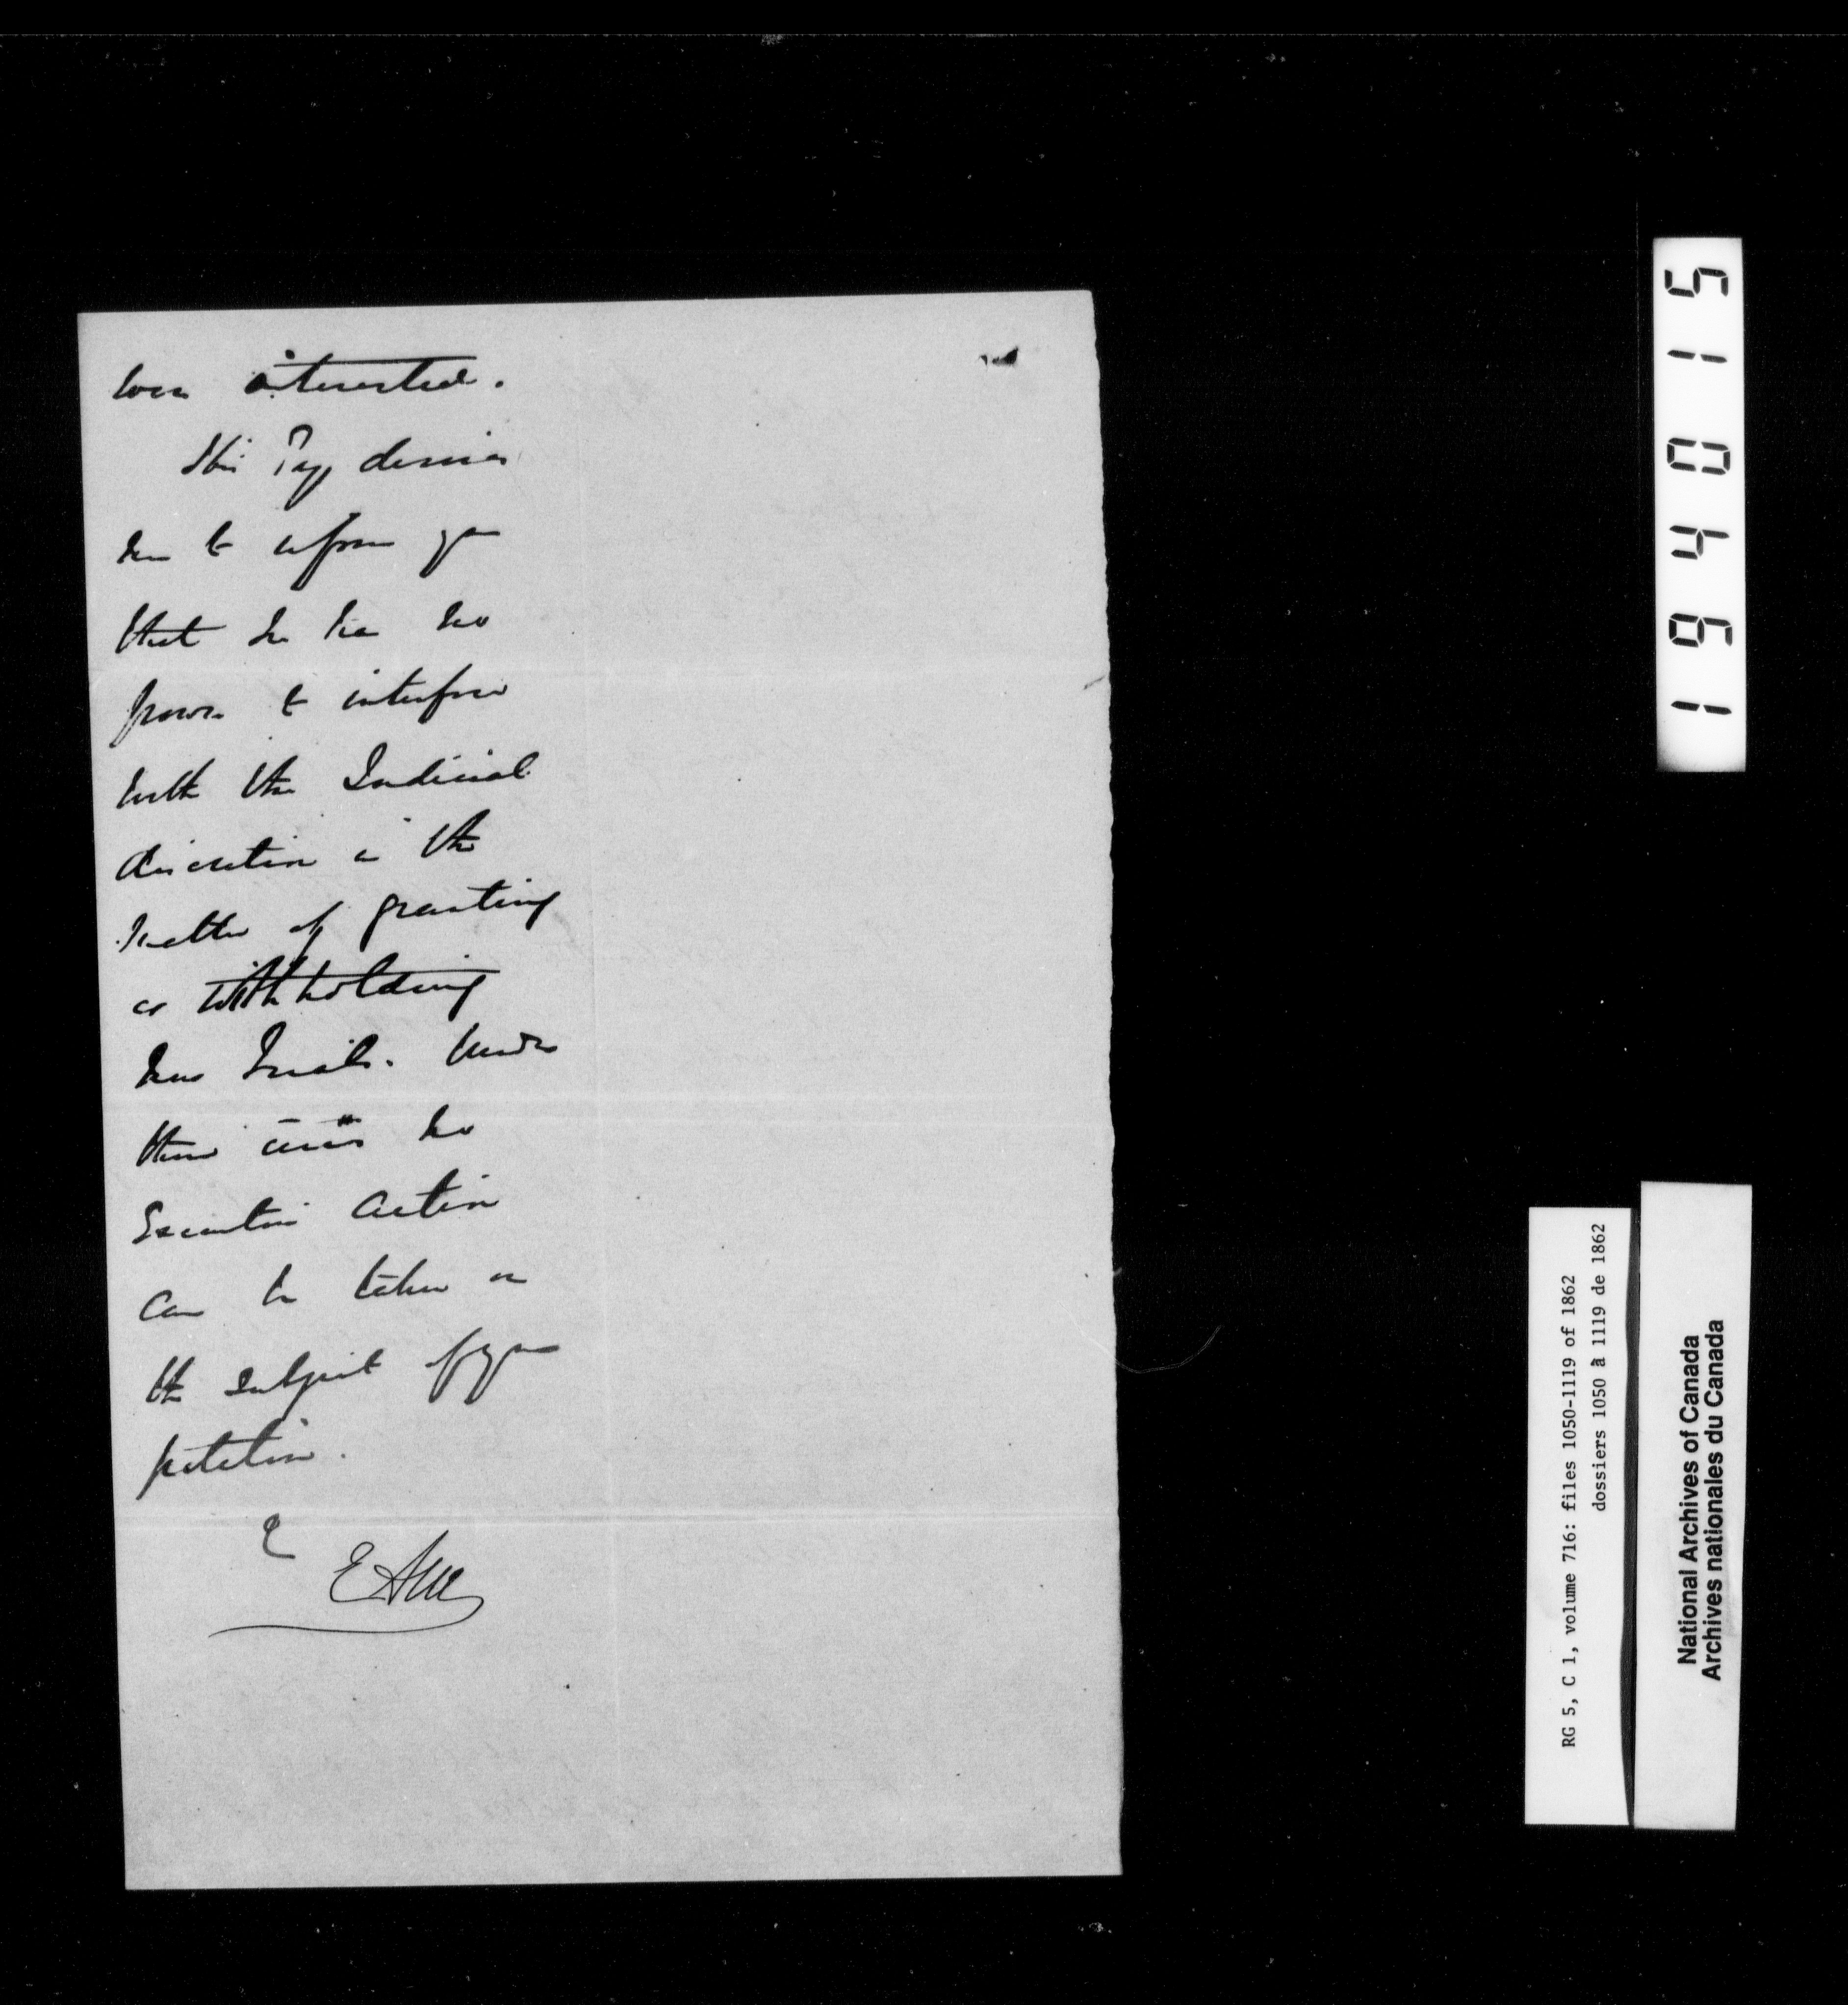 were interested.
His Excy desires
me to inform you
that he has no
power to interfere
with the Judicial
discretion in the
matter of granting
or withholding
new trials. Under
these circes no
Executive Action
can be taken on
the subject of your
petition.
194015
RG 5, C 1, volume 716: files 1050-1119 of 1862
dossiers 1050 à 1119 de 1862
National Archives of Canada
Archives nationales du Canada